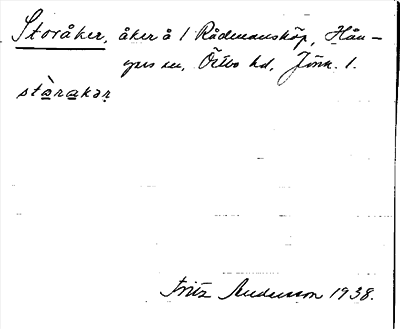 Storåker, åker å 1 Rådmansköp, Hån-
gers sn, Östbo hd, Jönk. l.
stàrakər
Fritz Andersson 1938.